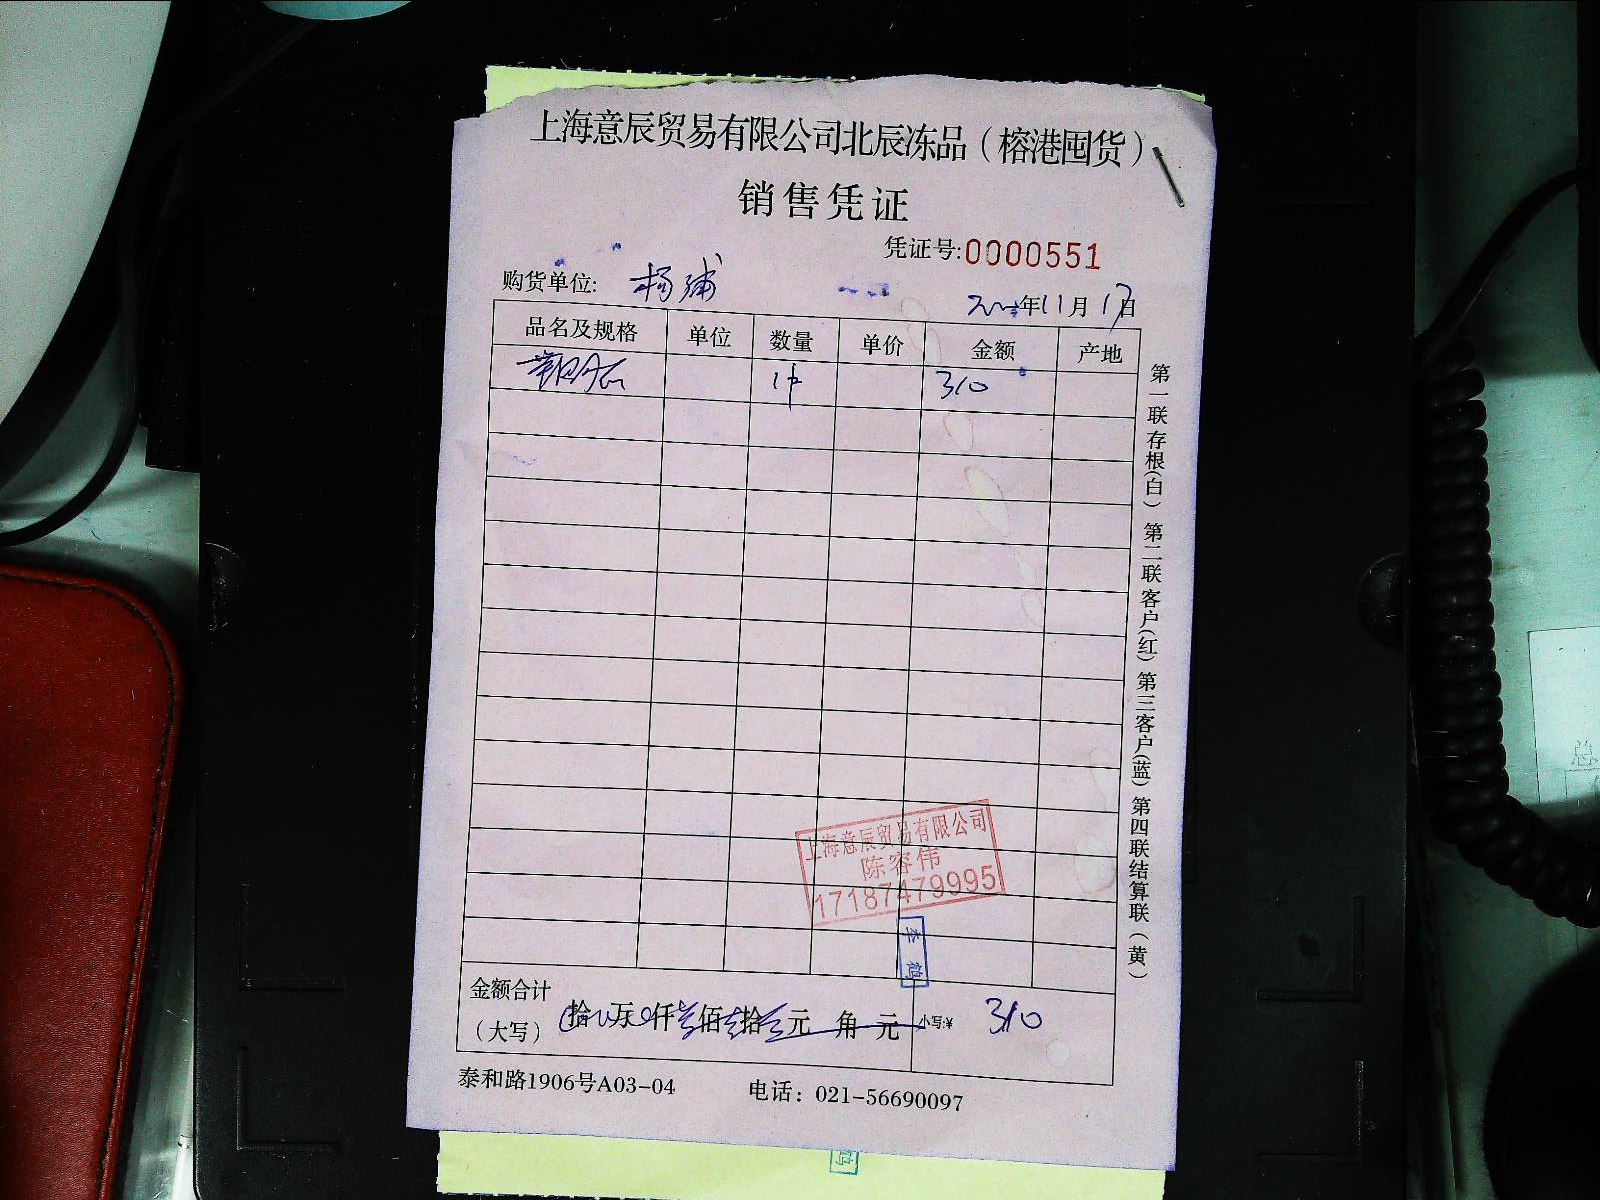 上海意辰贸易有限公司北辰冻品（榕港囤货）
销售凭证
凭证号:0000551
购货单位: 杨浦
年11月17日
品名及规格 单位 数量 单价 金额 产地
1件 310
第一联存根(白) 第二联客户(红) 第三客户(蓝) 第四联结算联(黄)
上海意辰贸易有限公司
陈容伟
17187479995
李鹤
金额合计
（大写） 拾 万 仟叁佰壹拾元 角 元 小写:¥ 310
泰和路1906号A03-04 电话：021-56690097
鹤
总